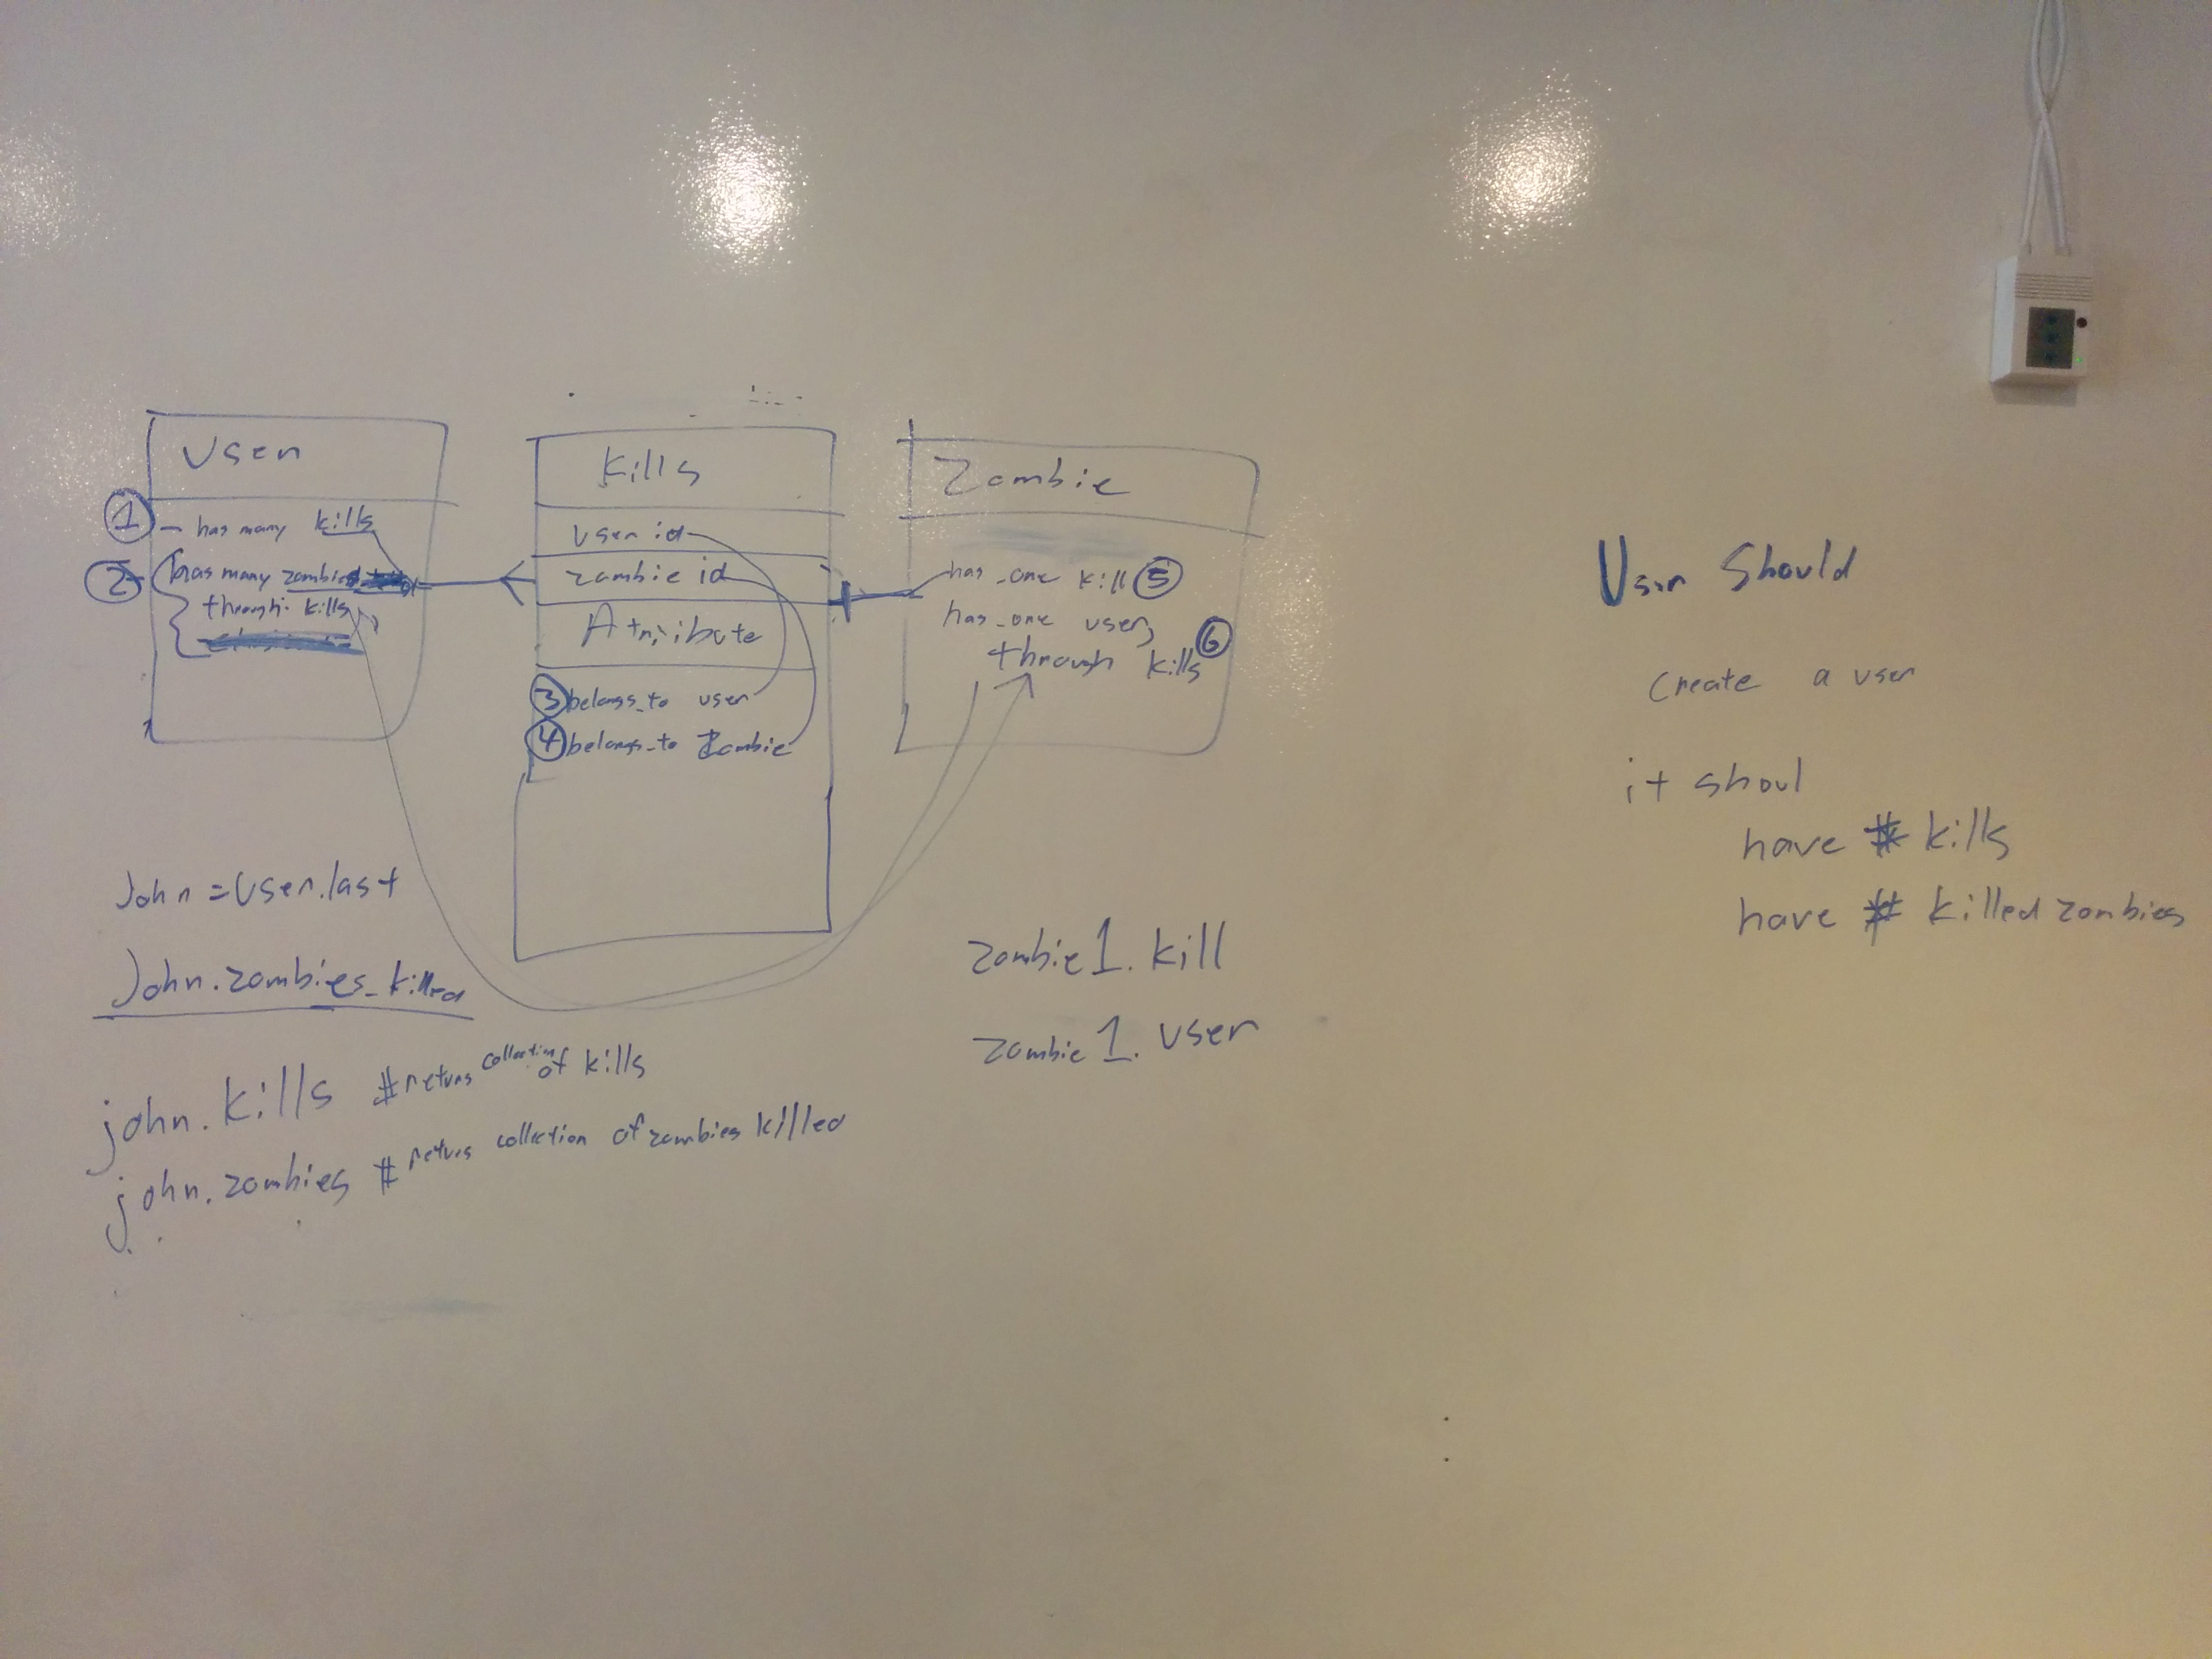 User
1 - has many kills
2 has many zombies
through kills
Kills
user id
zombie id
Attribute
3 belongs_to user
4 belongs_to Zombie
Zombie
has_one kill 5
has_one user,
through kills 6
John = User.last
John.zombies_killed
john.kills # returs collection of kills
john.zombies # returs collection of zombies killed
zombie1.kill
zombie1.user
User Should
Create a user
it shoul
have # kills
have # killed zombies